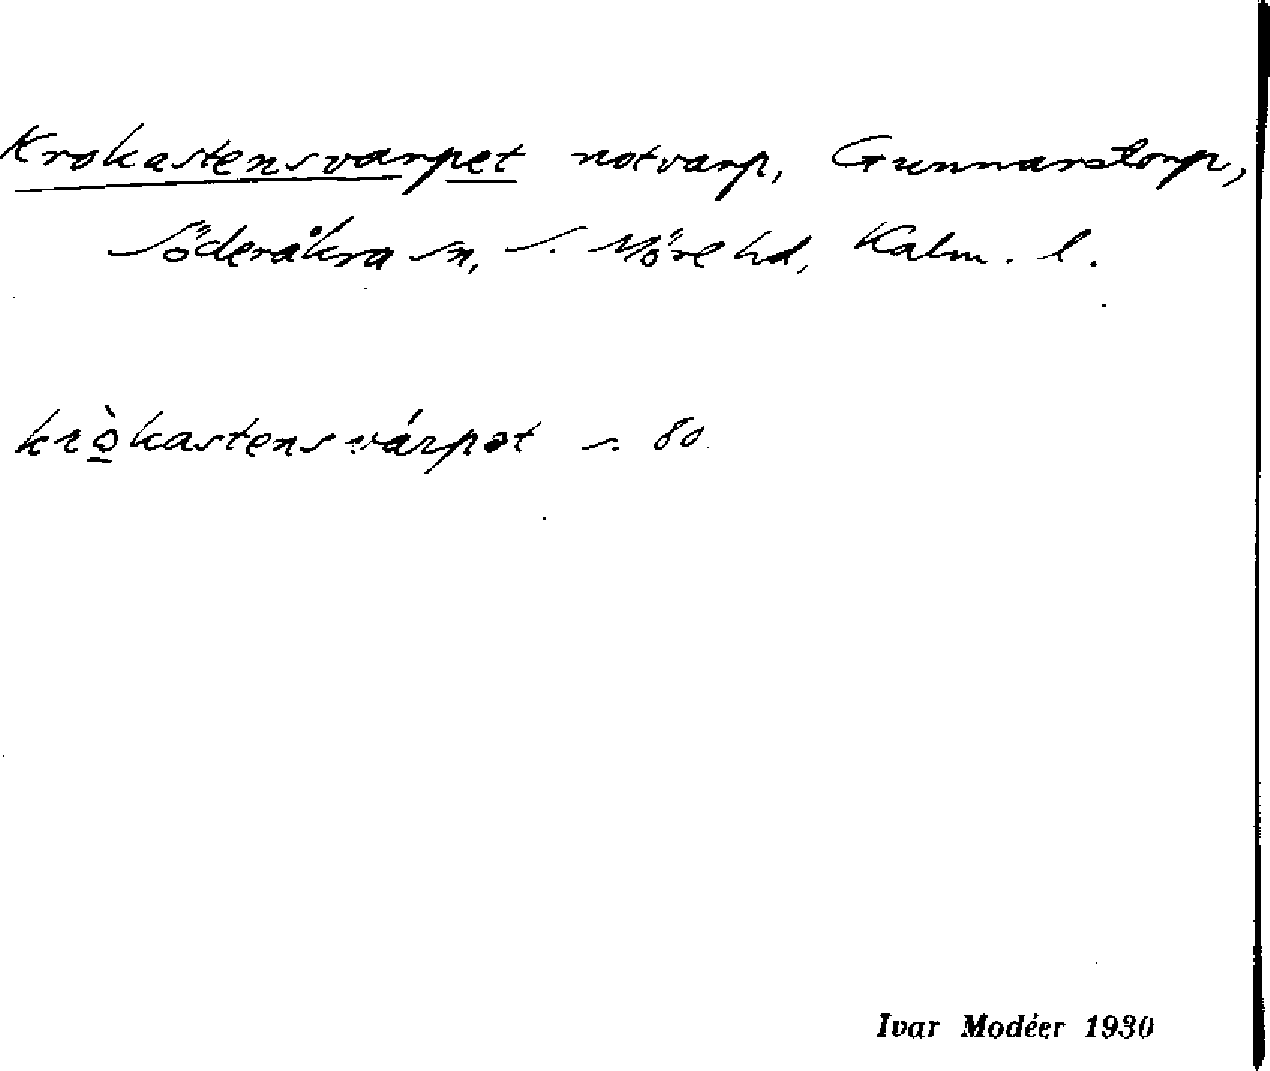 Krokastensvarpet notvarp, Gunnarstorp,
Söderåkra sn, S. Möre hd, Kalm. l.
krò̲kastensvárpət s. 80
Ivar Modéer 1930